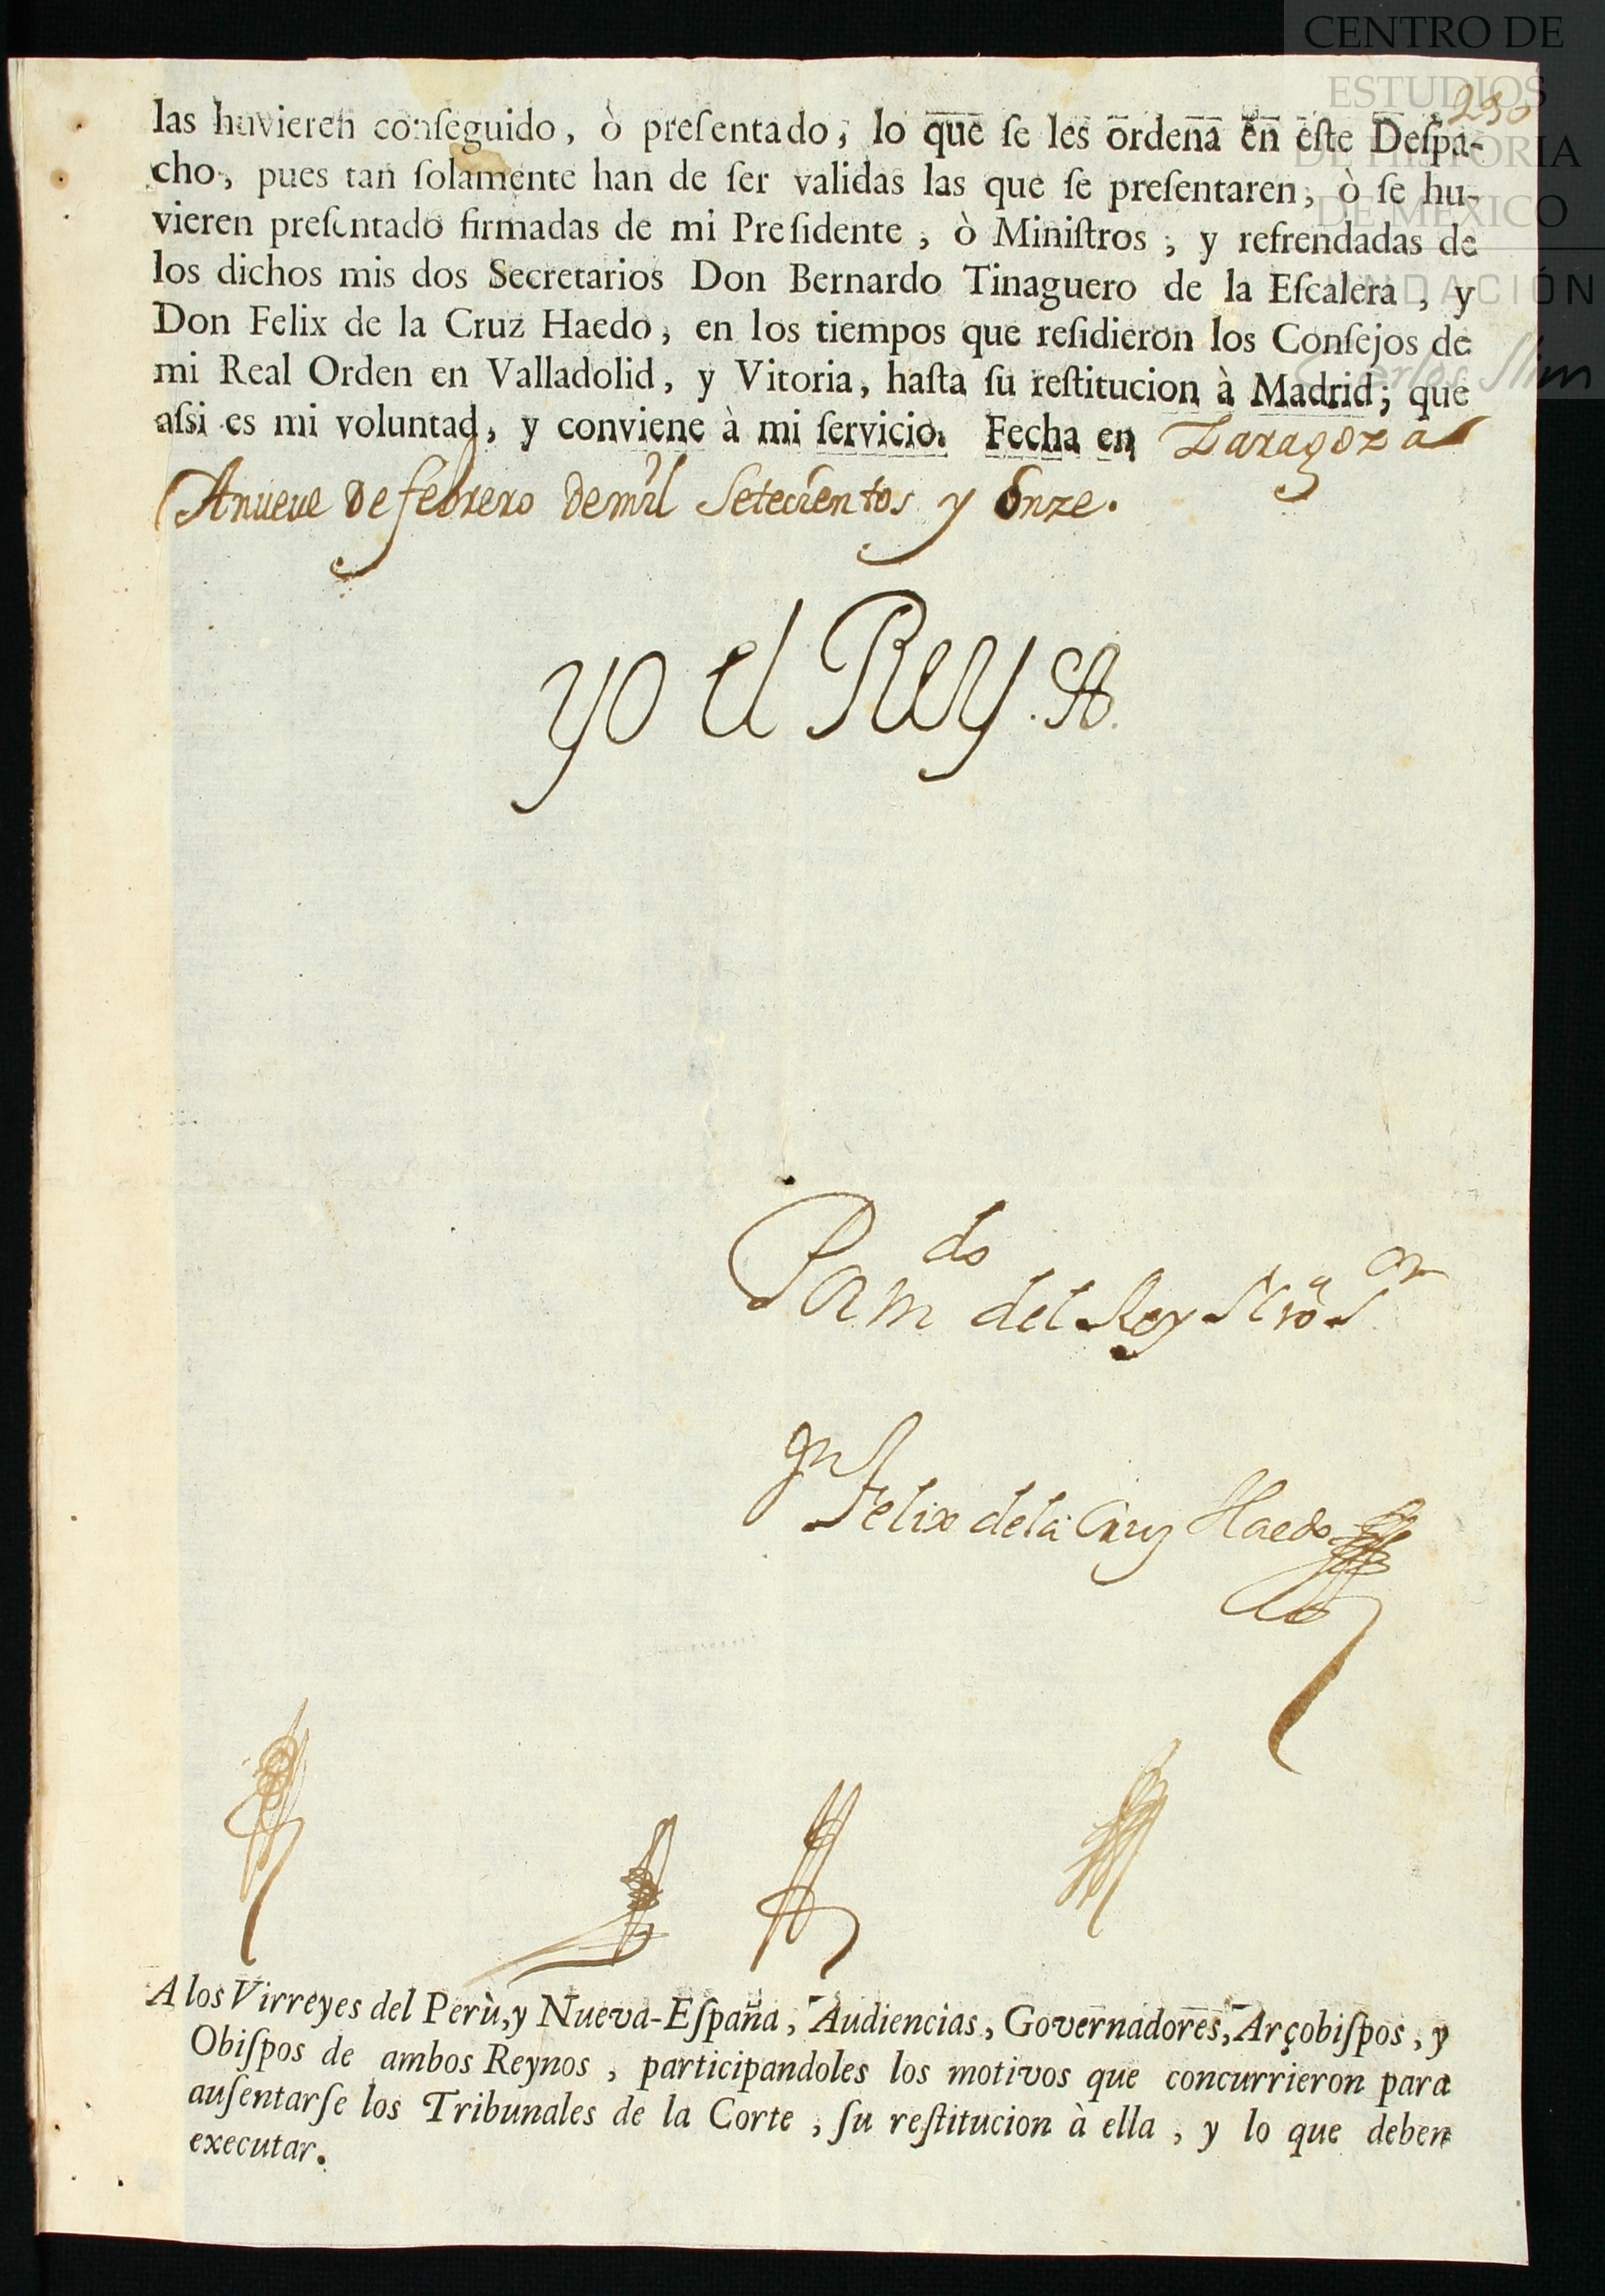 CENTRO DE
ESTUDIOS
DE HISTORIA
DE MÉXICO
FUNDACIÓN
Carlos Slim
230
las huvieren conſeguido, ò preſentado, lo que ſe les ordena en eſte Deſpa-
cho, pues tan ſolamente han de ſer validas las que ſe preſentaren, ò ſe hu-
vieren preſentado firmadas de mi Preſidente, ò Miniſtros, y refrendadas de
los dichos mis dos Secretarios Don Bernardo Tinaguero de la Eſcalera, y
Don Felix de la Cruz Haedo, en los tiempos que reſidieron los Conſejos de
mi Real Orden en Valladolid, y Vitoria, haſta ſu reſtitucion à Madrid; que
aſsi es mi voluntad, y conviene à mi ſervicio. Fecha en Zaragoza
A nueve de febrero de mil Setecientos y Onze.
yo el Rey.
Por mdo del Rey Nro Sor
Dn Felix de la Cruz Haedo
A los Virreyes del Perù, y Nueva-Eſpaña, Audiencias, Governadores, Arçobiſpos, y
Obiſpos de ambos Reynos, participandoles los motivos que concurrieron para
auſentarſe los Tribunales de la Corte, ſu reſtitucion à ella, y lo que deben
executar.